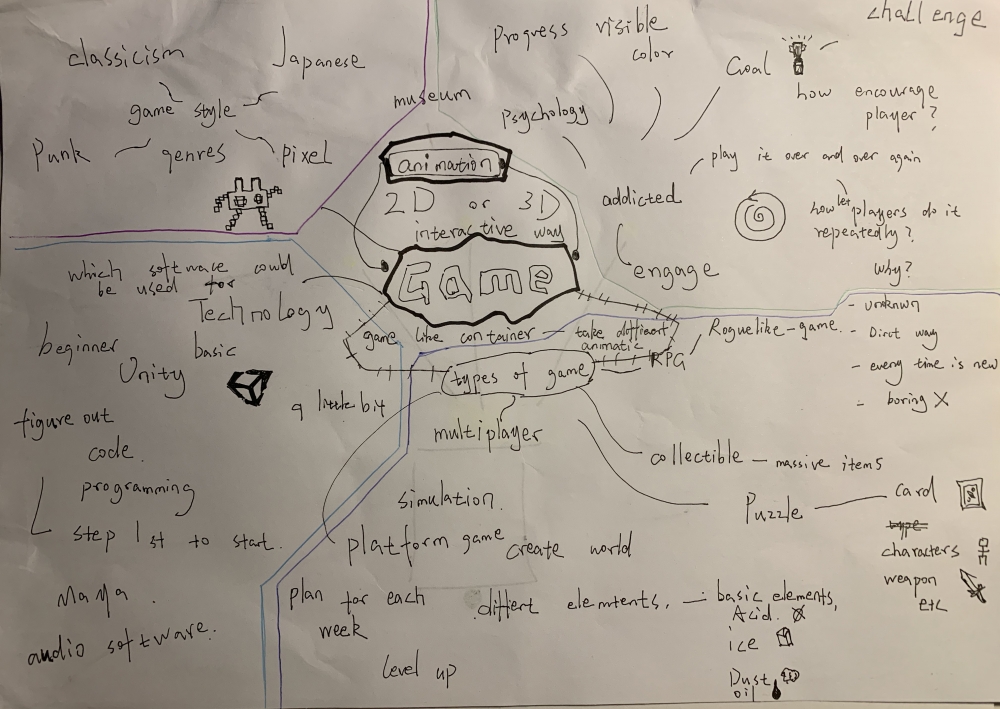 challenge
classicism
Japanese
game style
Punk
genres
pixel
museum
Progress visible
color
Psychology
Goal
how encourage
player?
play it over and over again
addicted
how let players do it
repeatedly?
engage
why?
- unknwn
- Dirct way
- every time is new
- boring X
animation
2D or 3D
interactive way
Game
game like container — take different
animatic
Roguelike-game.
RPG
types of game
which software could
be used for
Technology
beginner
basic
Unity
a little bit
figure out
code.
programming
step 1st to start.
Maya.
audio software.
multiplayer
simulation.
platform game
create world
plan for each
week
level up
differt elemtents. — basic elements,
Acid.
ice
Dust
oil
collectible — massive items
Puzzle
card
type
characters
weapon
etc